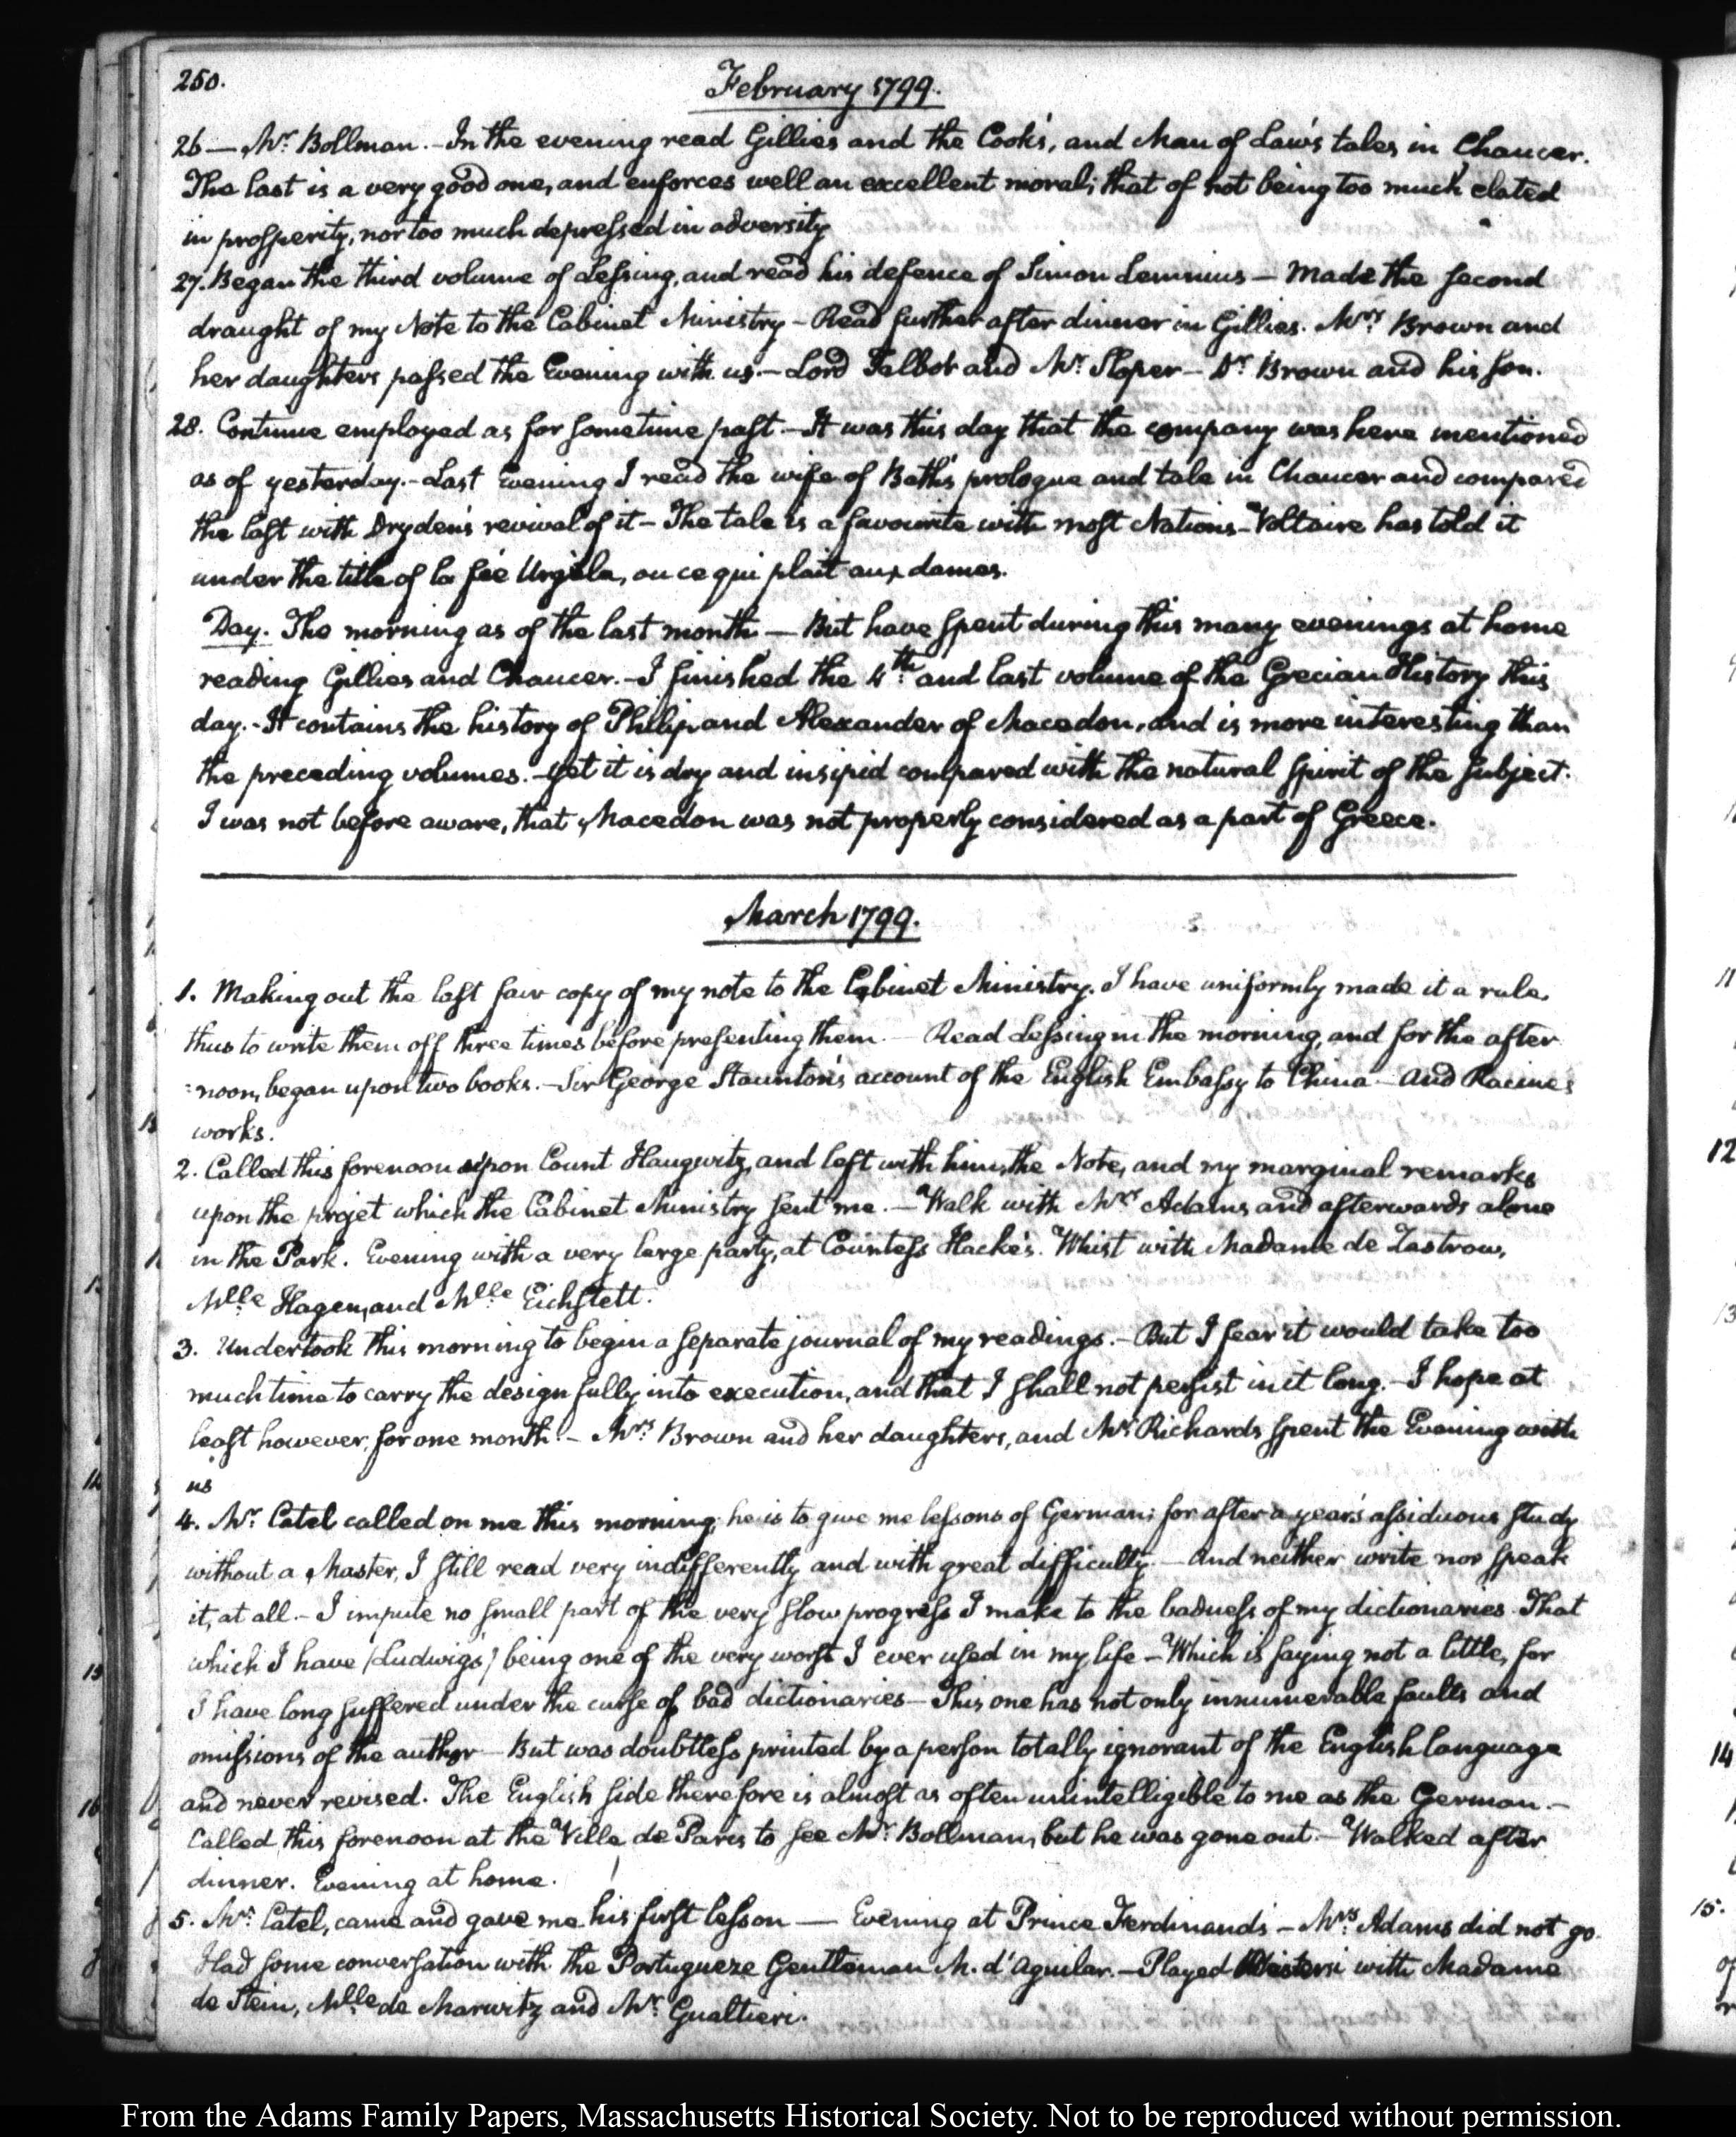 250.
February 1799.
26 — Mr. Bollman. - In the evening read Gillies and the Cook's, and Man of Law's tales in Chaucer.
The last is a very good one, and enforces well an excellent moral; that of not being too much elated
in prosperity, nor too much depressed in adversity
27. Began the third volume of Lessing, and read his defence of Simon Lemnius — Made the second
draught of my Note to the Cabinet Ministry - Read further after dinner in Gillies. Mrs. Brown and
her daughters passed the Evening with us. - Lord Talbot and Mr. Sloper - Dr. Brown and his son.
28. Continue employed as for sometime past. - It was this day that the company was here mentioned
as of yesterday. - Last Evening I read the wife of Bath's prologue and tale in Chaucer and compared
the last with Dryden's revival of it - The tale is a favourite with most Nations - Voltaire has told it
under the title of la fée Urgéle, ou ce qui plait aux dames.
Day. The morning as of the last month — But have spent during this many evenings at home
reading Gillies and Chaucer. - I finished the 4th. and last volume of the Grecian History this
day. - It contains the history of Philip and Alexander of Macedon, and is more interesting than
the preceding volumes. - Yet it is dry and insipid compared with the natural spirit of the subject.
I was not before aware, that Macedon was not properly considered as a part of Greece.
March 1799.
1. Making out the last fair copy of my note to the Cabinet Ministry. I have uniformly made it a rule,
thus to write them off three times before presenting them. — Read Lessing in the morning, and for the after
=noon, began upon two books. - Sir George Staunton's account of the English Embassy to China - And Racine's
works.
2. Called this forenoon upon Count Haugwitz, and left with him, the Note, and my marginal remarks
upon the projet which the Cabinet Ministry sent me. — Walk with Mrs. Adams and afterwards alone
in the Park. Evening with a very large party, at Countess Hacke's. Whist with Madame de Zastrow,
Mlle Hagen, and Mlle Eichstett.
3. Undertook this morning to begin a separate journal of my readings. - But I fear it would take too
much time to carry the design fully into execution, and that I shall not persist in it long. - I hope at
least however, for one month. - Mrs. Brown and her daughters, and Mr. Richards spent the Evening with
us
4. Mr. Catel called on me this morning; he is to give me lessons of German; for after a year's assiduous study
without a Master, I still read very indifferently and with great difficulty. — And neither write nor speak
it, at all. - I impute no small part of the very slow progress I make to the badness of my dictionaries. That
which I have (Ludwig's) being one of the very worst I ever used in my life - Which is saying not a little, for
I have long suffered under the curse of bad dictionaries - This one has not only innumerable faults and
omissions of the author - But was doubtless printed by a person totally ignorant of the English language
and never revised. The English side therefore is almost as often unintelligible to me as the German. -
Called this forenoon at the Ville de Paris to see Mr. Bollman, but he was gone out. - Walked after
dinner. Evening at home.
5. Mr. Catel, came and gave me his first lesson — Evening at Prince Ferdinand's - Mrs. Adams did not go.
Had some conversation with the Portugueze Gentleman M. d'Aguilar. - Played with Madame
de Stein, Mlle de Marwitz and Mr. Gualtieri.
From the Adams Family Papers, Massachusetts Historical Society. Not to be reproduced without permission.